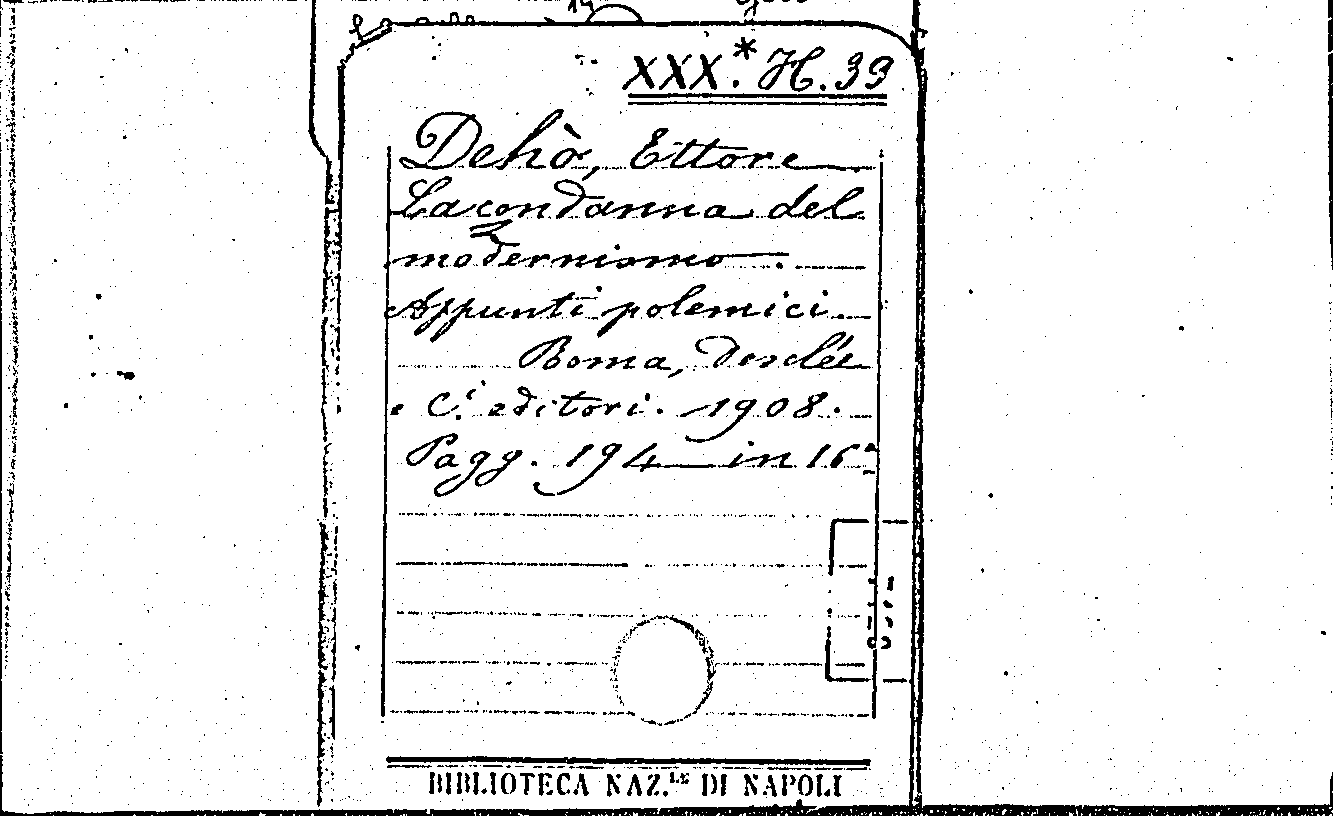 XXX.* H. 39
Dehò, Ettore
La condanna del
modernismo.
Appunti polemici.
Roma, Desclée
e C.i editori. 1908.
Pagg. 194 in 16°
BIBLIOTECA NAZ.LE DI NAPOLI